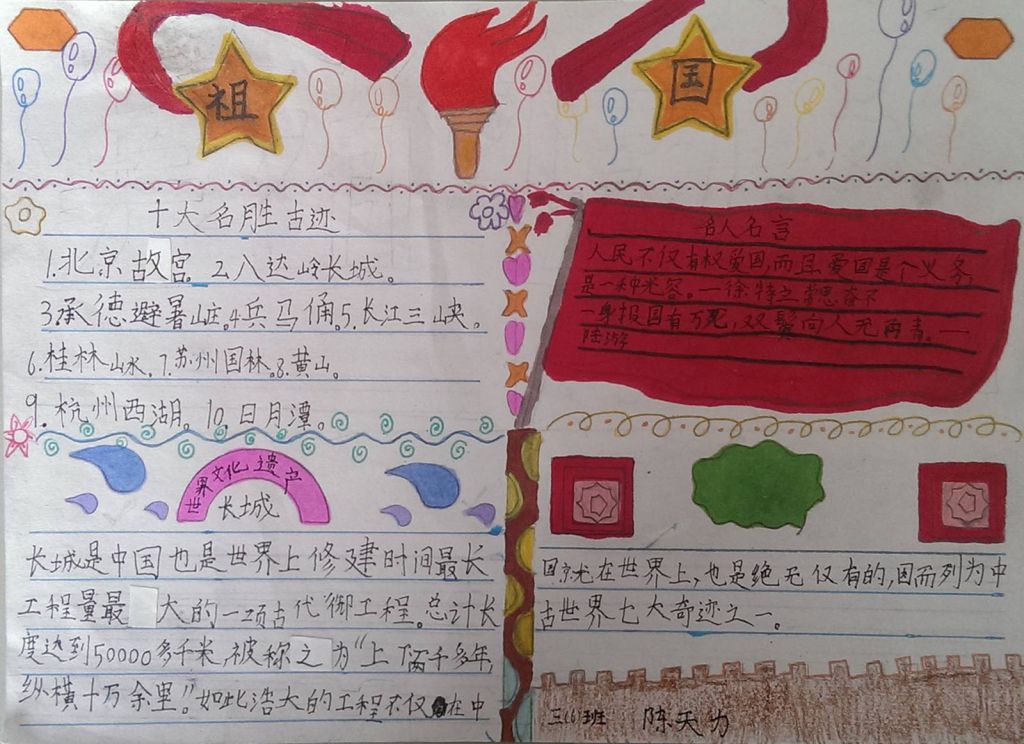 祖
国
十大名胜古迹
1.北京故宫。2.八达岭长城。
3.承德避暑山庄。4.兵马俑。5.长江三峡。
6.桂林山水。7.苏州园林。8.黄山。
9.杭州西湖。10.日月潭。
名人名言
人民不仅有权爱国,而且爱国是个义务,
是一种光容。一徐特立
一身报国有万死,双鬓向人无再青。一
陆游
世界文化遗产
长城
长城是中国也是世界上修建时间最长
工程量最大的一项古代御工程。总计长
度达到50000多千米,被称之为“上下两千多年,
纵横十万余里。”如此浩大的工程不仅在中
国就在世界上,也是绝无仅有的,因而列为中
古世界七大奇迹之一。
三(6)班 陈天力